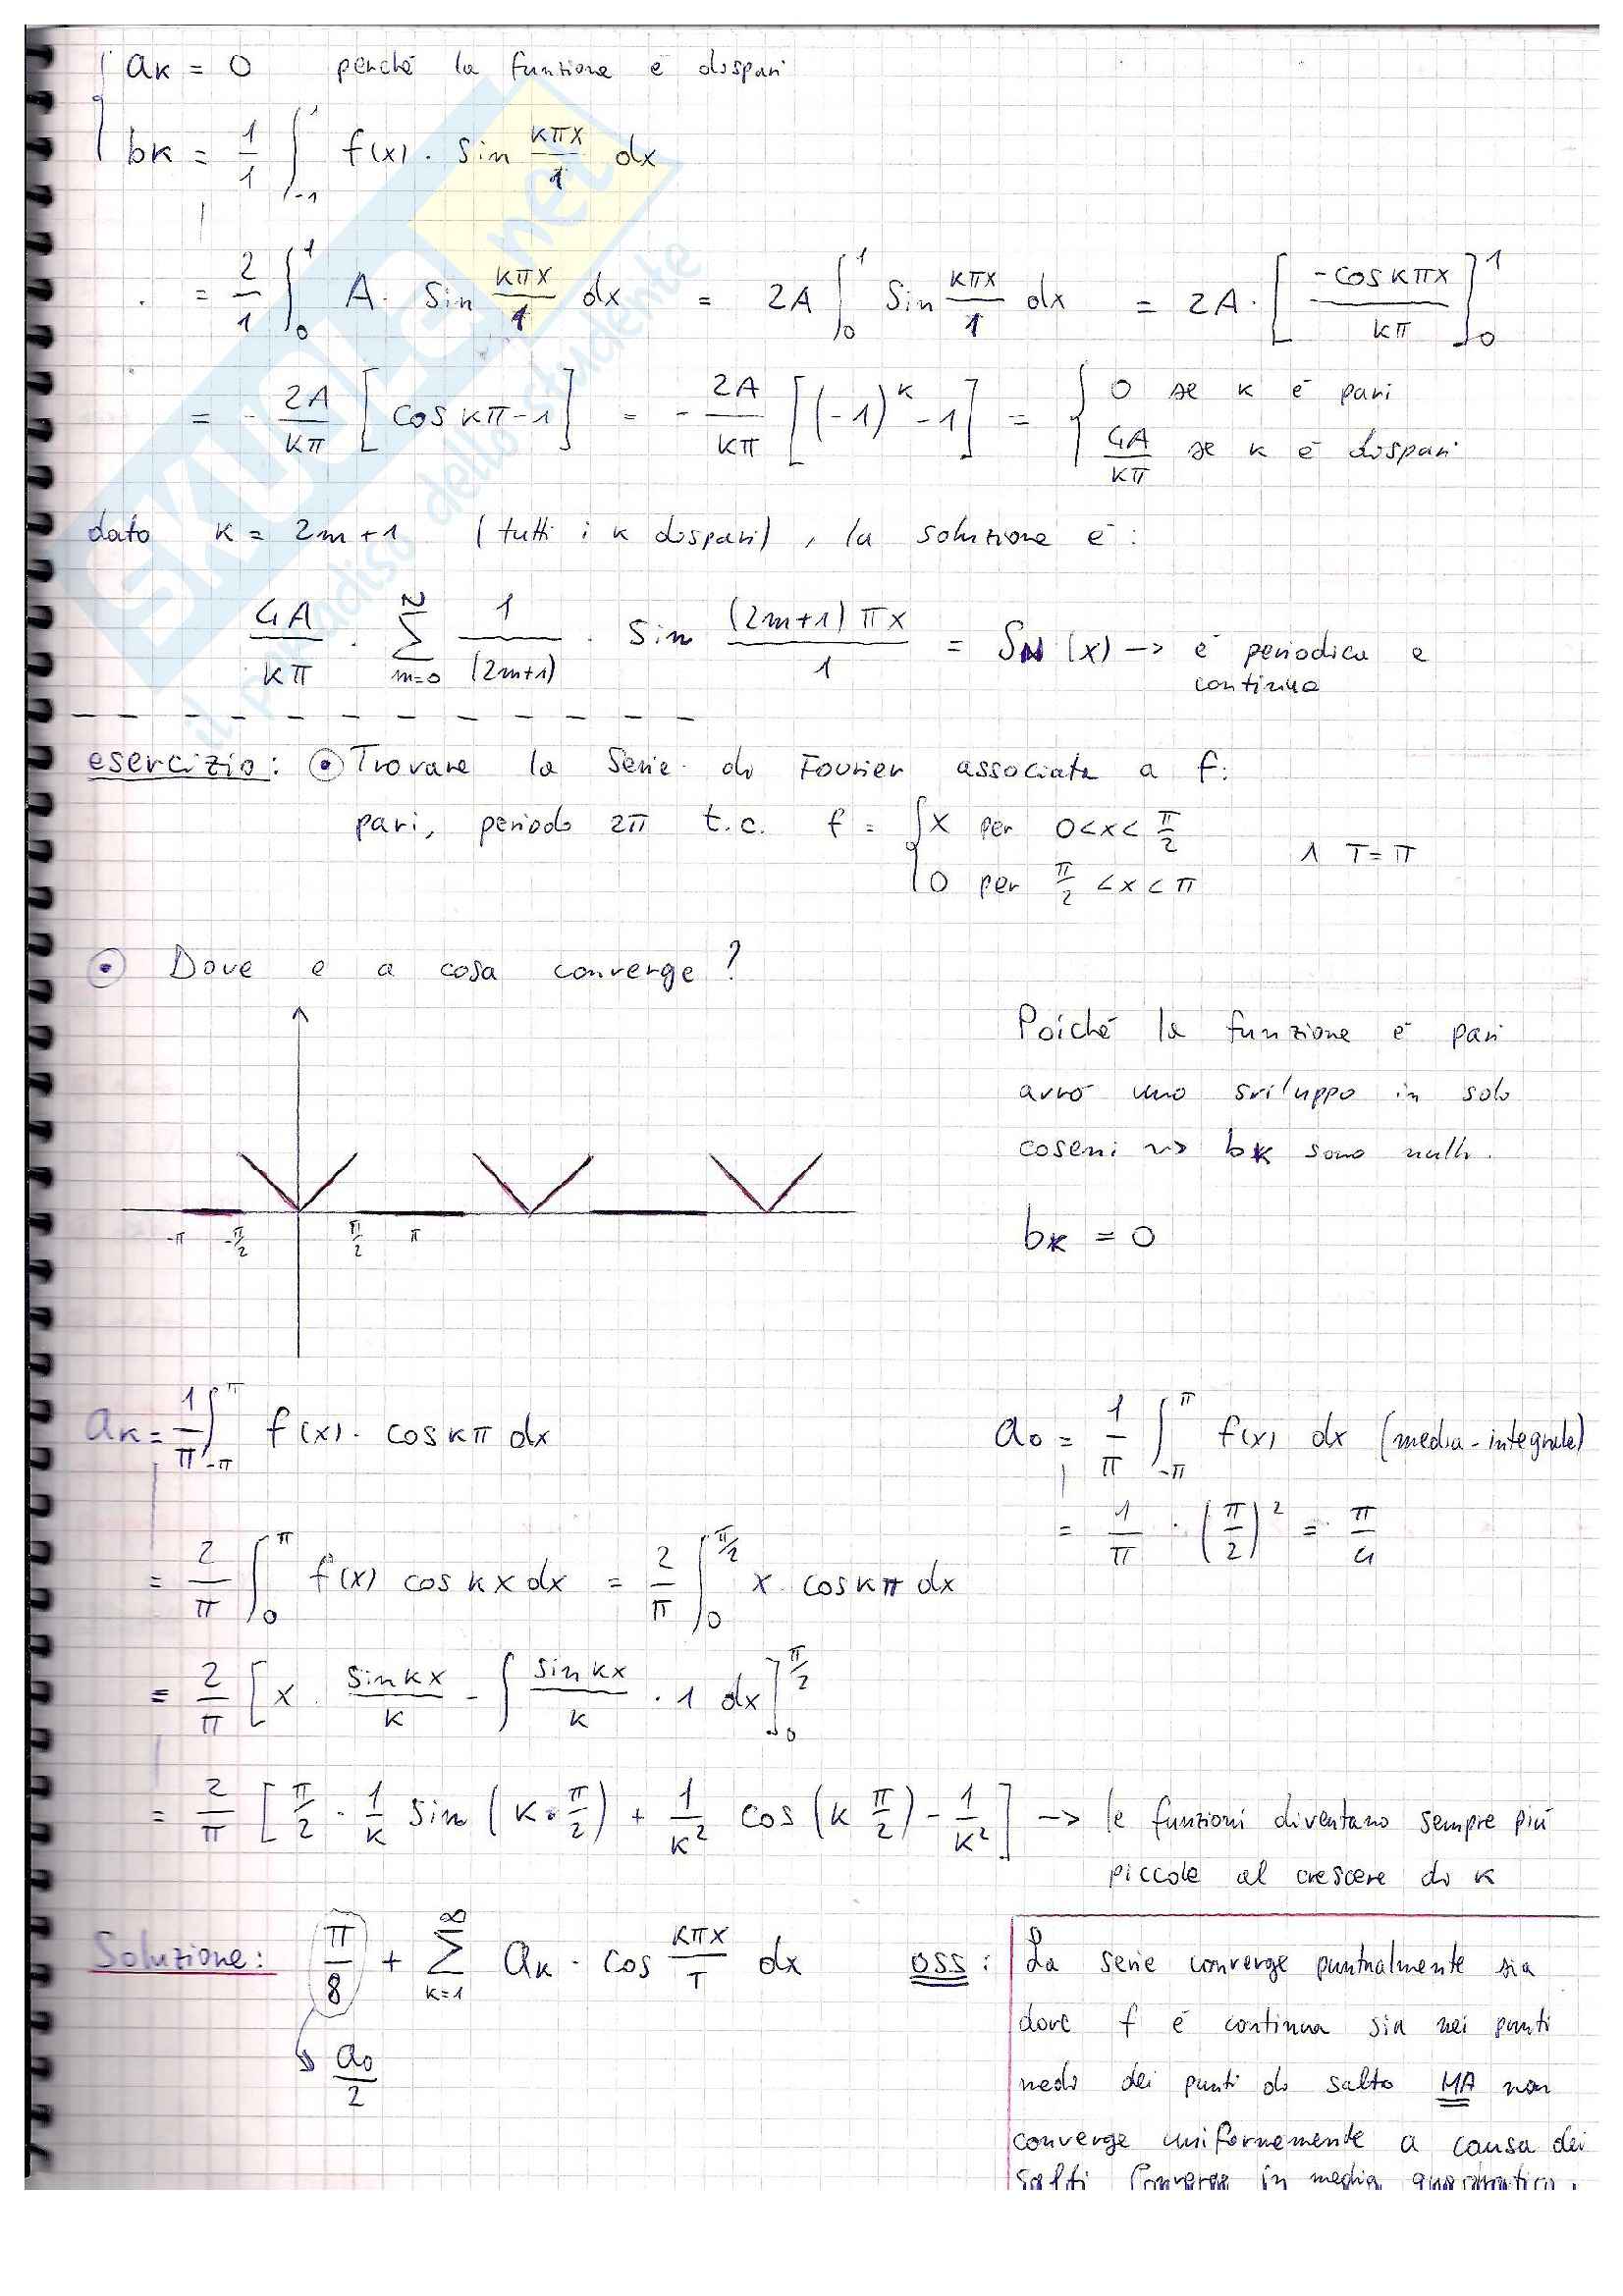 aκ = 0 perché la funzione è dispari
bκ = 1/1 ∫_{-1}^{1} f(x) · sin κπx/1 dx
= 2/1 ∫_0^1 A · sin κπx/1 dx = 2A ∫_0^1 sin κπx/1 dx = 2A · [-cos κπx / κπ]_0^1
= - 2A/κπ [cos κπ - 1] = - 2A/κπ [(-1)^κ - 1] = { 0 se κ è pari
4A/κπ se κ è dispari
dato κ = 2m+1 (tutti i κ dispari), la soluzione è:
4A/κπ · ∑_{m=0}^{N} 1/(2m+1) · sin (2m+1)πx/1 = S_N(x) -> è periodica e
continua
esercizio: ⊙ Trovare la Serie di Fourier associata a f:
pari, periodo 2π t.c. f = { x per 0<x<π/2
0 per π/2 <x<π
1 T=π
⊙ Dove e a cosa converge?
Poiché la funzione è pari
avrò uno sviluppo in solo
coseni ~> bκ sono nulli.
bκ = 0
-π -π/2 π/2 π
aκ = 1/π ∫_{-π}^{π} f(x) · cos κπ dx
a0 = 1/π ∫_{-π}^{π} f(x) dx (media-integrale)
= 1/π · (π/2)^2 = π/4
= 2/π ∫_0^π f(x) cos κx dx = 2/π ∫_0^{π/2} x · cos κπ dx
= 2/π [x · sin κx/κ - ∫ sin κx/κ · 1 dx]_0^{π/2}
= 2/π [π/2 · 1/κ sin (κ · π/2) + 1/κ² cos (κ π/2) - 1/κ²] -> le funzioni diventano sempre più
piccole al crescere di κ
Soluzione: π/8 + ∑_{κ=1}^{∞} aκ · cos κπx/T dx
a0/2
oss: La serie converge puntualmente sia
dove f è continua sia nei punti
medi dei punti di salto MA non
converge uniformemente a causa dei
salti Converge in media quadratica.
SKUOLA.net
il paradiso dello studente